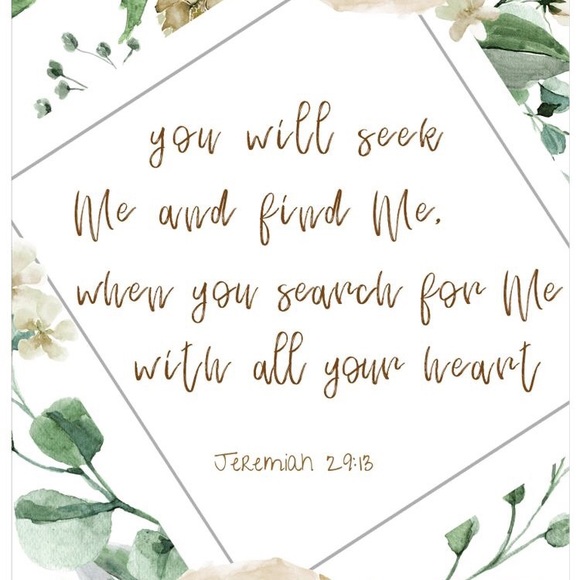 you will seek
Me and find Me,
when you search for Me
with all your heart
Jeremiah 29:13